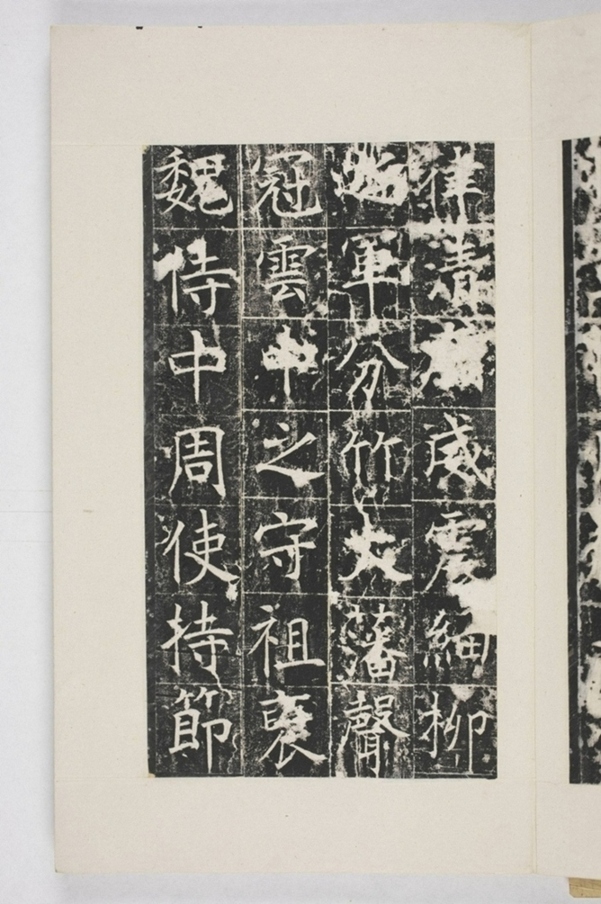 律清威震細柳
之軍分竹大藩聲
冠雲中之守祖裒
魏侍中周使持節